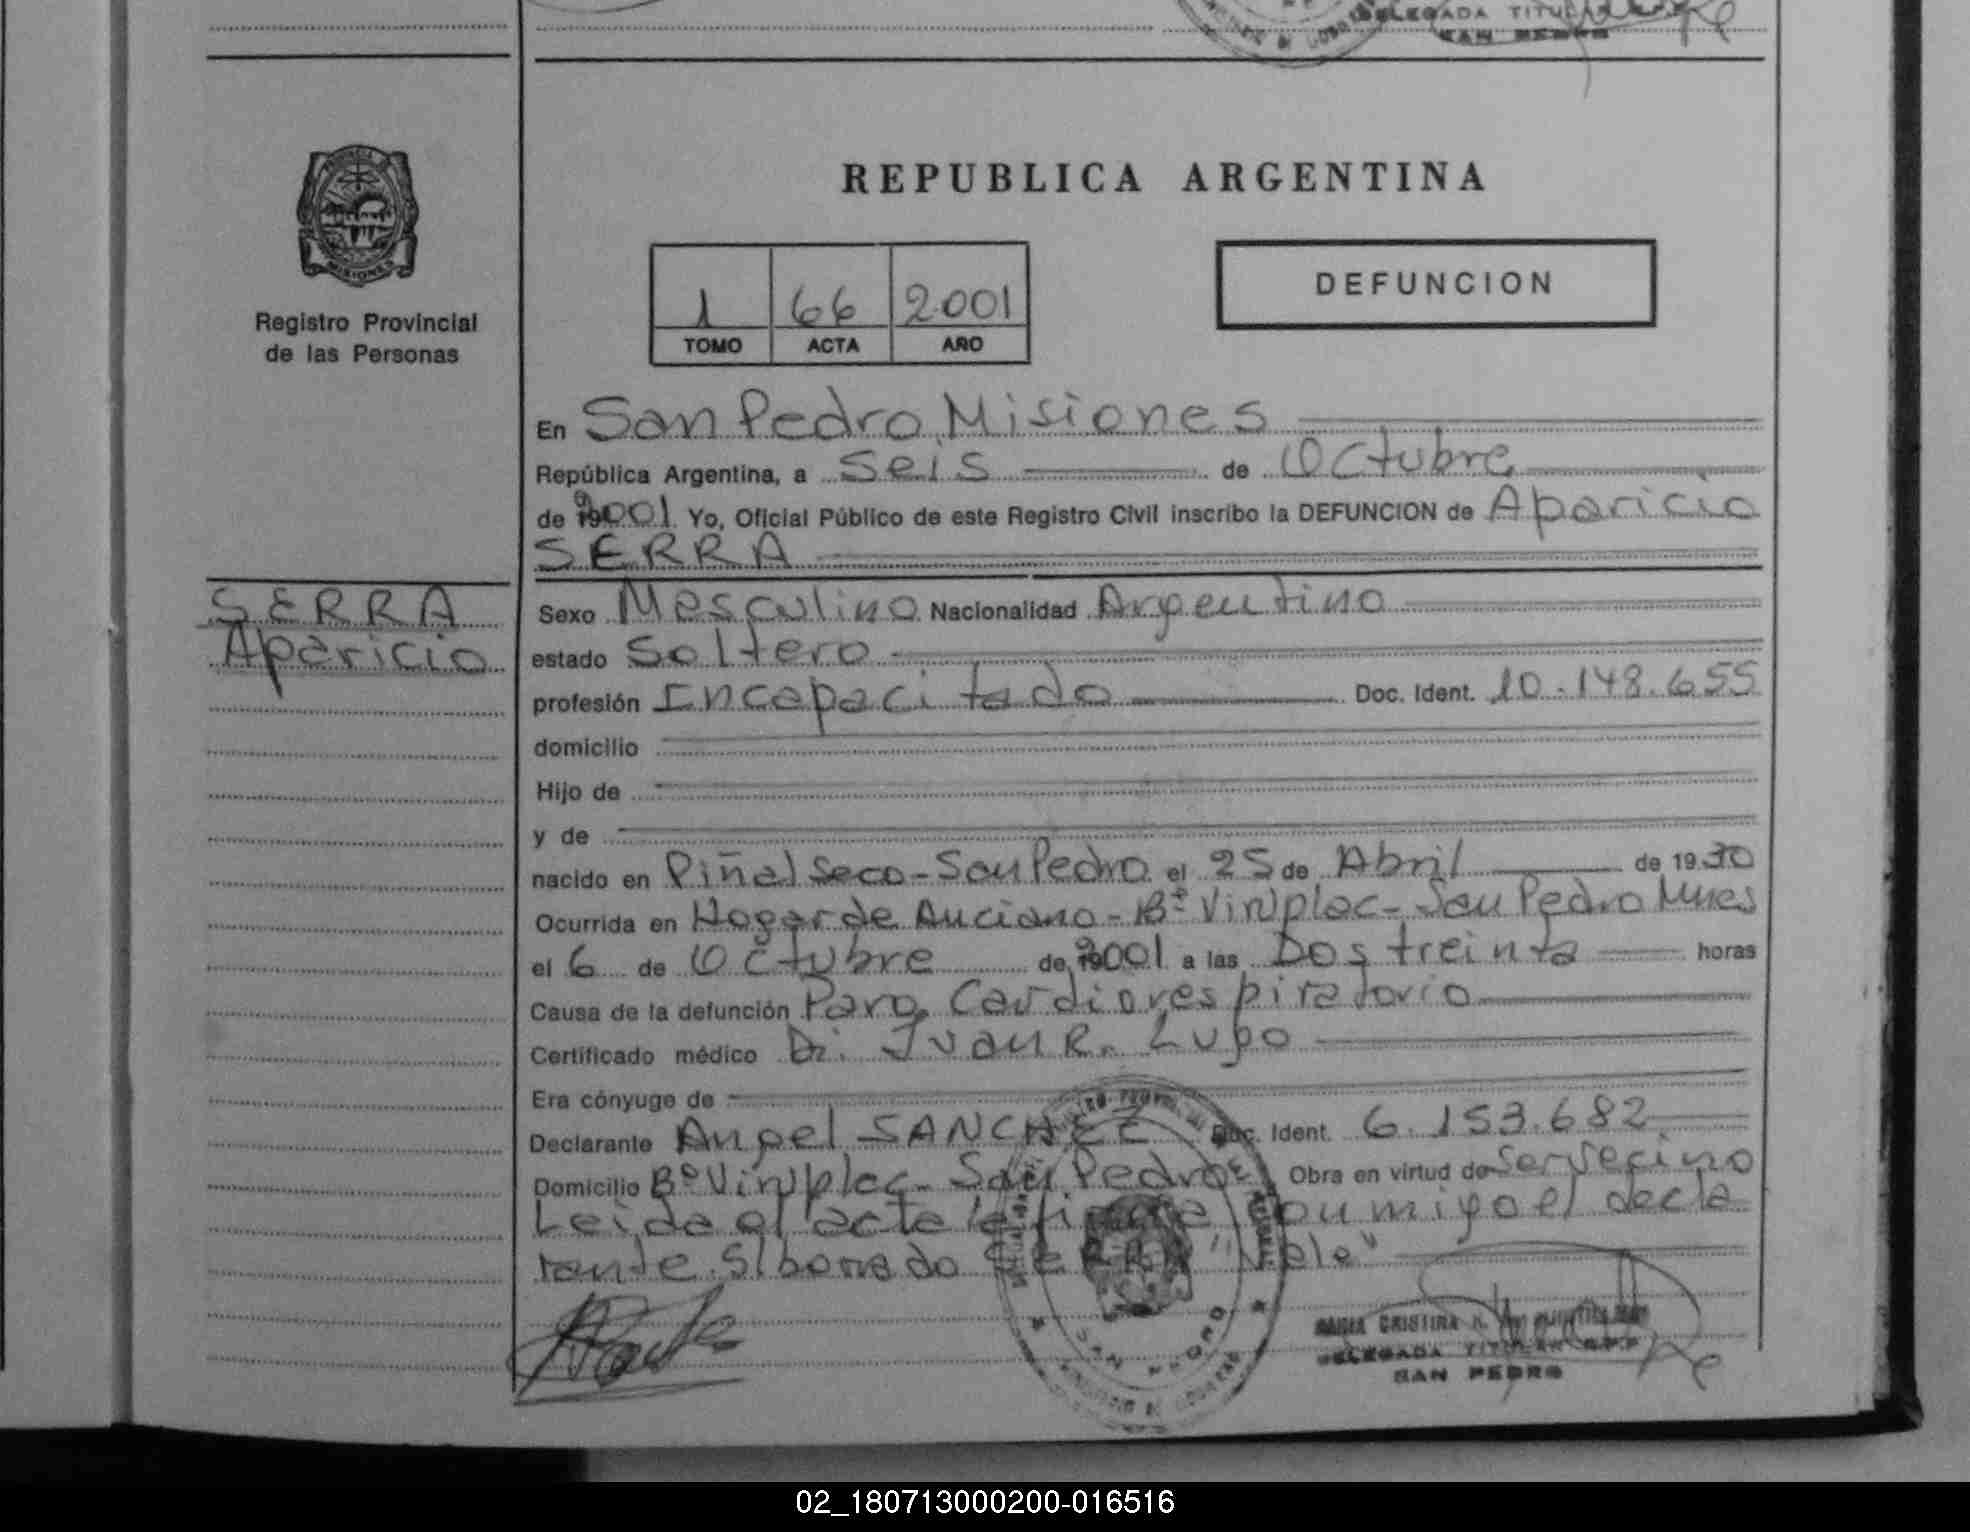 DELEGADA TITULAR
SAN PEDRO
PROVINCIA DE
MISIONES
Registro Provincial
de las Personas
REPUBLICA ARGENTINA
1 66 2001
TOMO ACTA AÑO
DEFUNCION
En San Pedro, Misiones
República Argentina, a Seis de Octubre
de 2001 Yo, Oficial Público de este Registro Civil inscribo la DEFUNCION de Aparicio
SERRA
SERRA
Aparicio
Sexo Masculino Nacionalidad Argentino
estado Soltero
profesión Incapacitado Doc. Ident. 10.148.655
domicilio
Hijo de
y de
nacido en Piñal Seco - San Pedro el 25 de Abril de 1930
Ocurrida en Hogar de Anciano - Bº Viruplac - San Pedro Mnes
el 6 de Octubre de 2001 a las Dos treinta horas
Causa de la defunción Paro Cardiorespiratorio
Certificado médico Dr. Juan R. Lupo
Era cónyuge de
Declarante Angel SANCHEZ Doc. Ident. 6.153.682
Domicilio Bº Viruplac - San Pedro Obra en virtud de Ser vecino
Leida el acta la firma con migo el decla
rante. S/borrado SERRA "Vale"
SAN PEDRO
CRISTINA
DELEGADA TITULAR R.P.P
SAN PEDRO
02_180713000200-016516